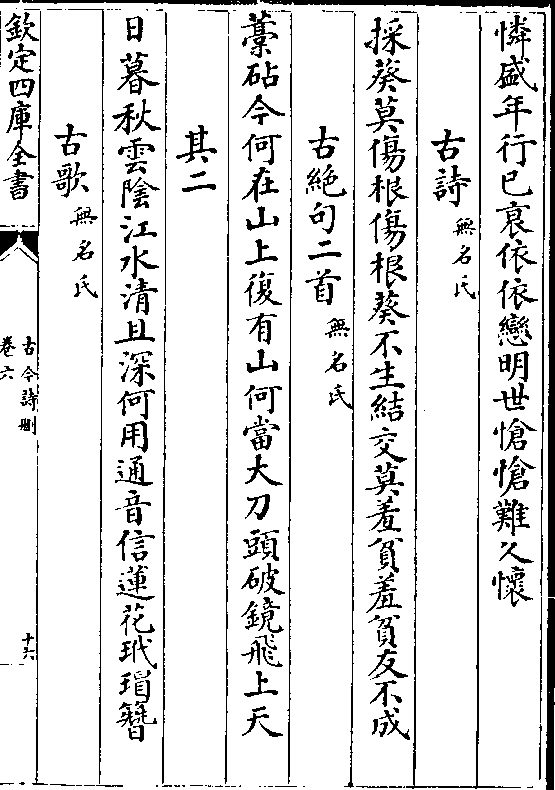 憐盛年行已衰依依戀明世愴愴難久懷
古詩 無名氏
採葵莫傷根傷根葵不生結交莫羞貧羞貧友不成
古絶句二首 無名氏
藁砧今何在山上復有山何當大刀頭破鏡飛上天
其二
日暮秋雲陰江水清且深何用通音信蓮花玳瑁簪
古歌 無名氏
欽定四庫全書
古今詩刪
卷六
十六